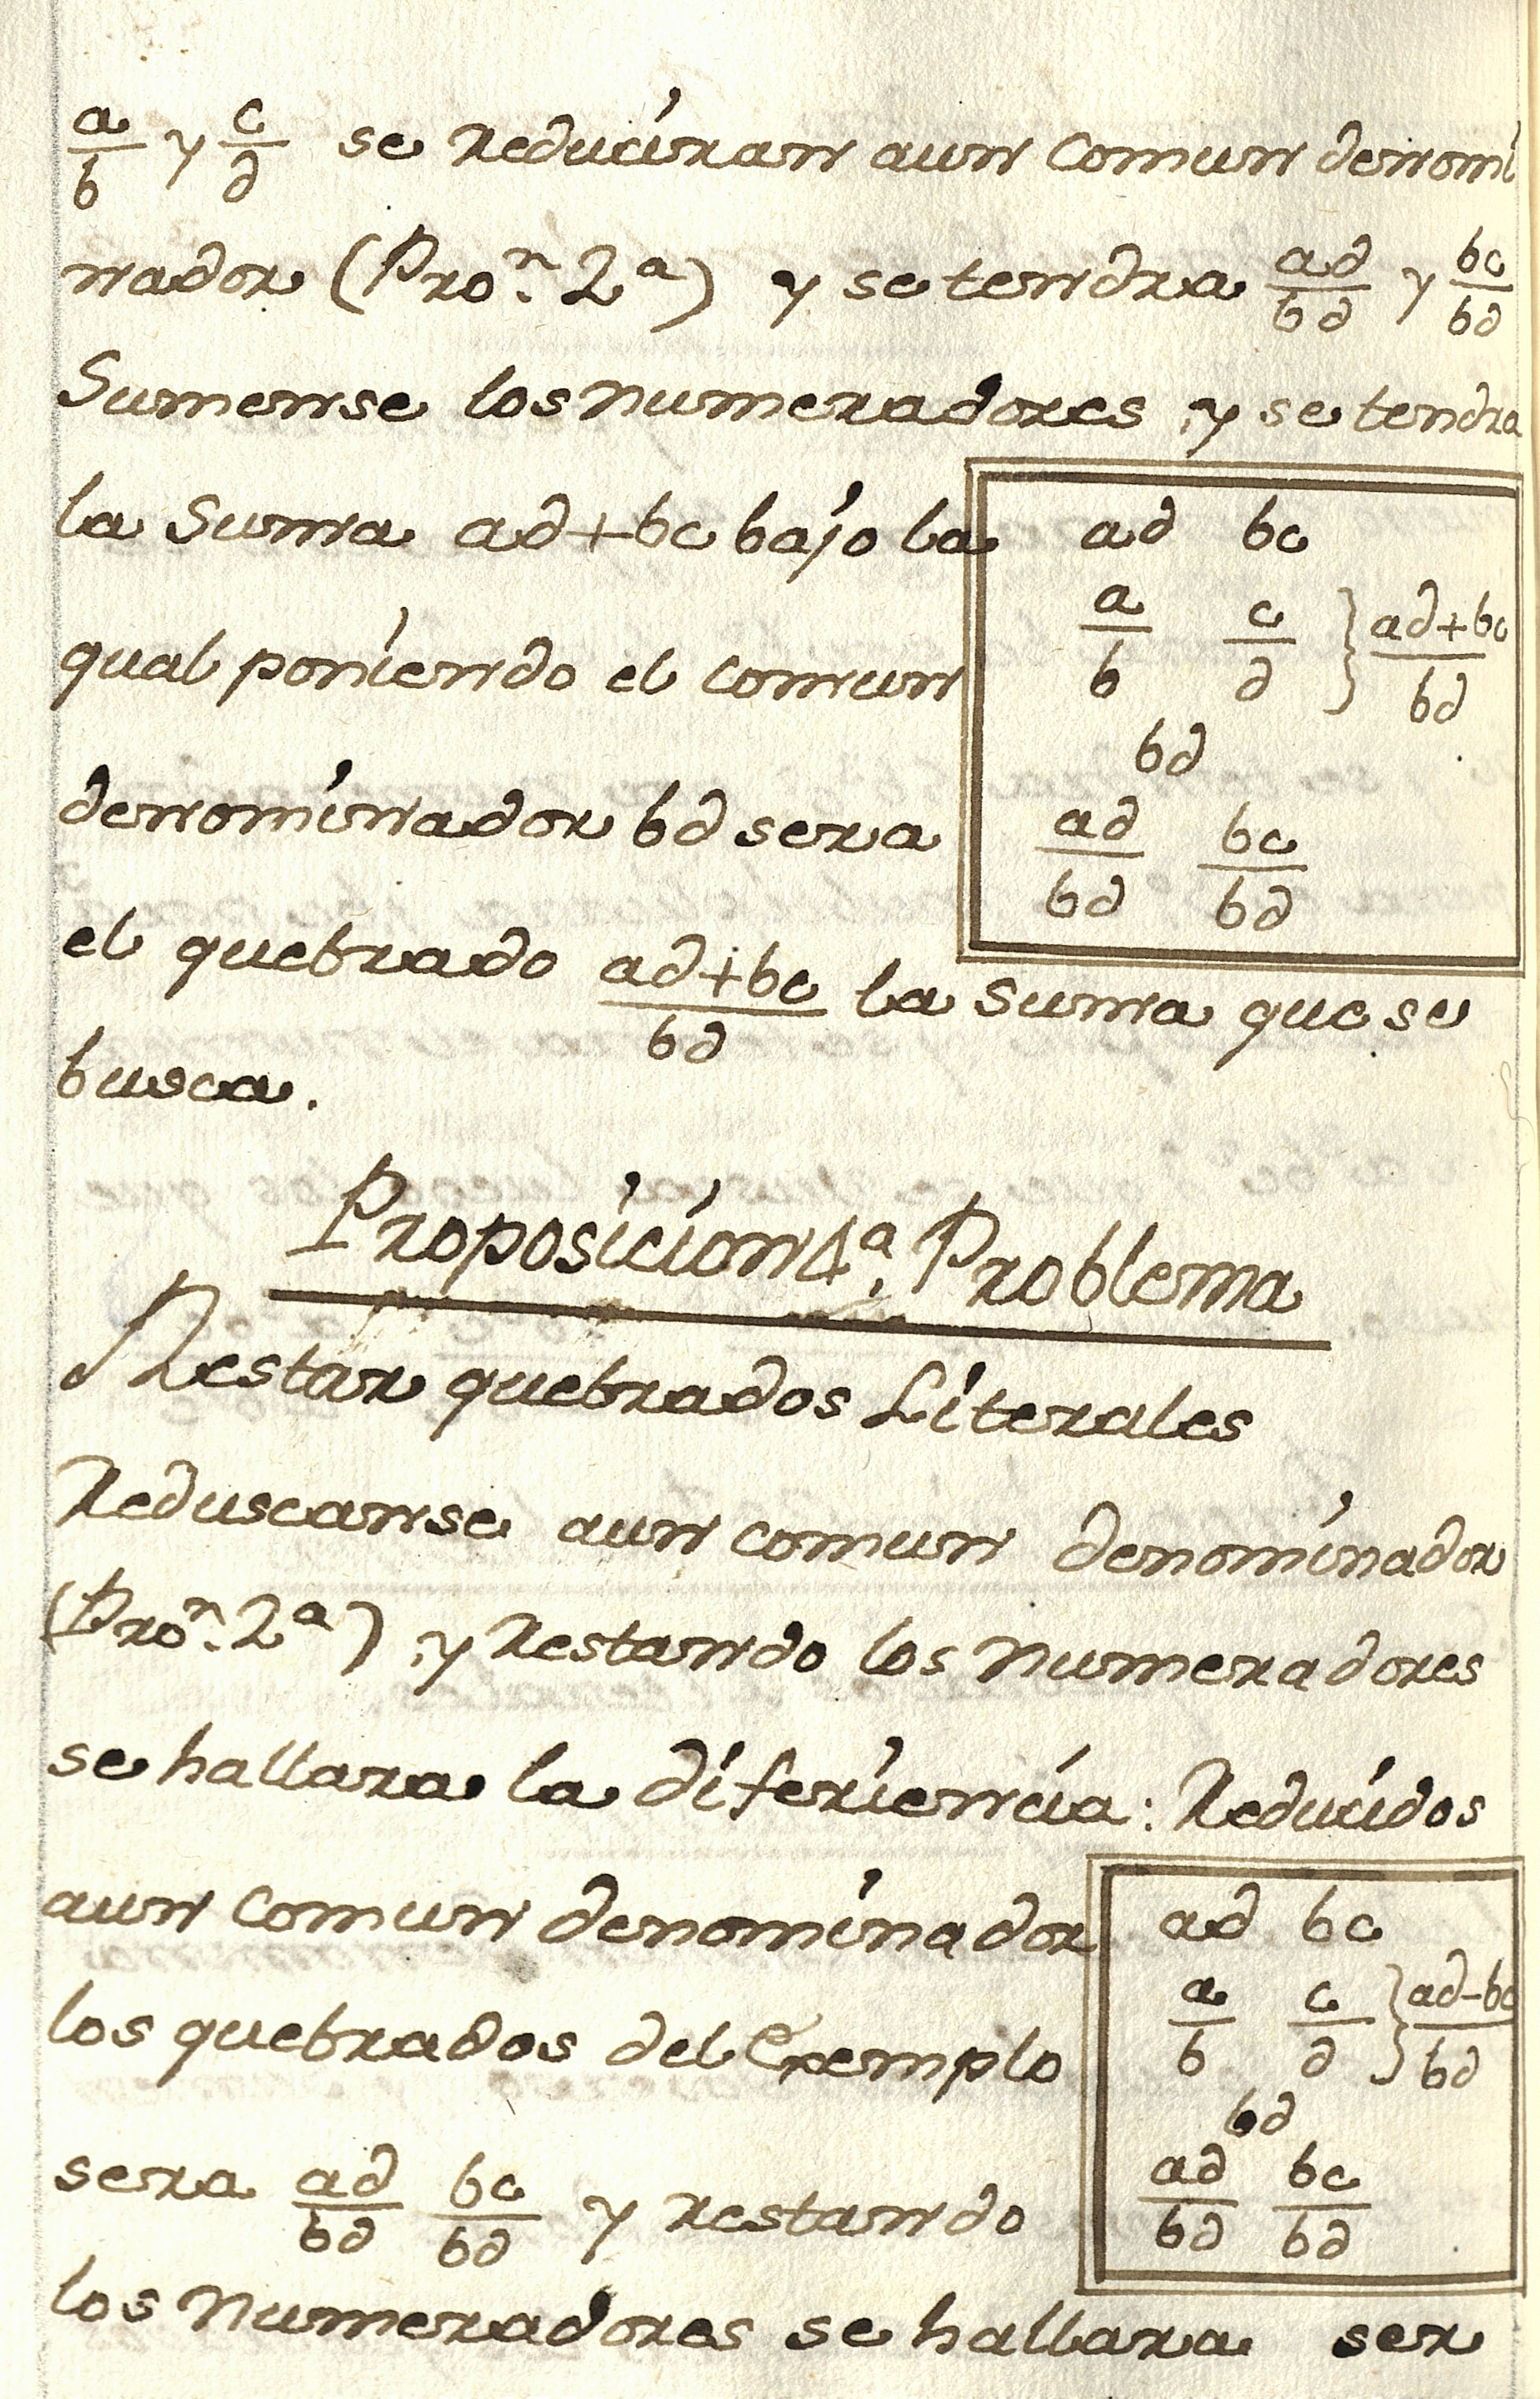 a/b y c/d se reduciran aun comun denomi
nador (Pro.ⁿ 2ª) y se tendra ad/bd y bc/bd
Sumense los numeradores, y se tendra
la suma ad+bc bajo la
qual poniendo el comun
denominador bd sera
el quebrado ad+bc/bd la suma que se
busca.
ad bc
a/b c/d } ad+bc/bd
bd
ad/bd bc/bd
Proposicion 4ª. Problema
Restar quebrados Literales
Reduscanse aun comun denominador
(Pro.ⁿ 2ª), y restando los numeradores
se hallara la diferiencia: Reducidos
aun comun denominador
los quebrados del Exemplo
sera ad/bd bc/bd y restando
los numeradores se hallara ser
ad bc
a/b c/d } ad-bc/bd
bd
ad/bd bc/bd